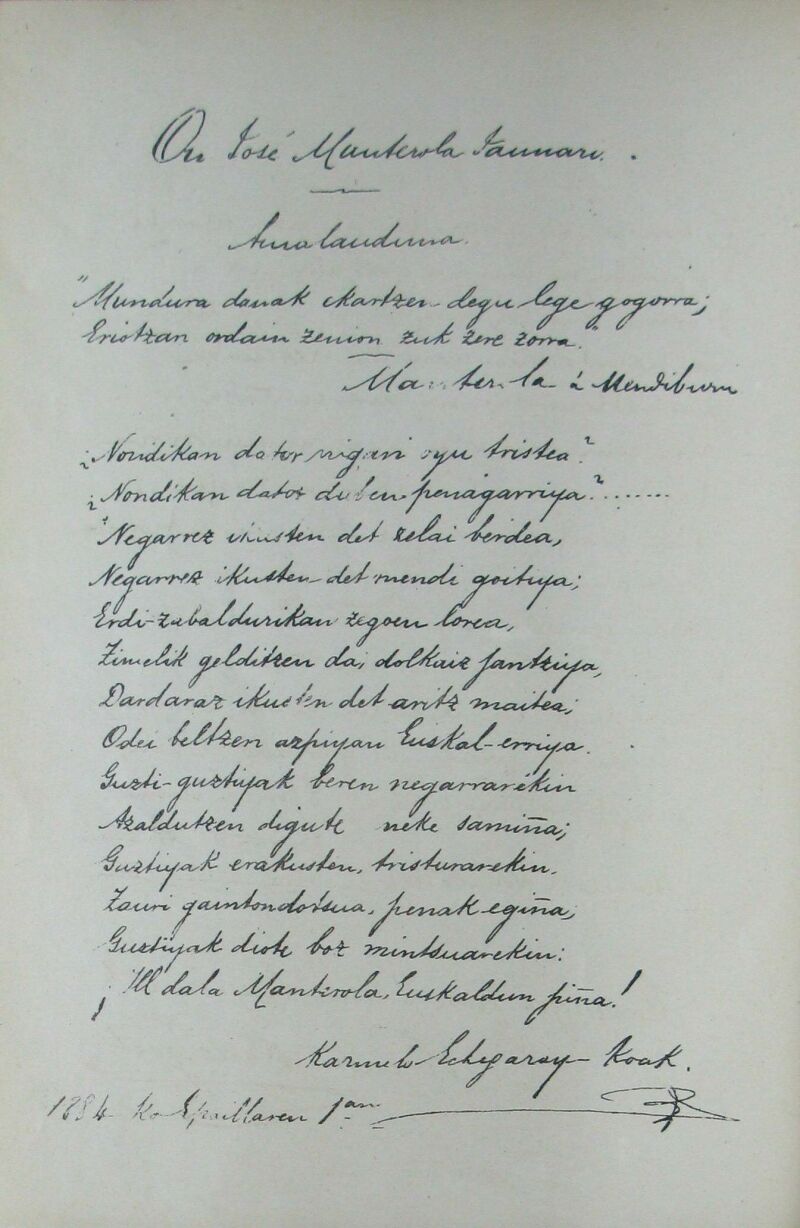 On José Manterola Jaunari.
Amalauduna.
"Mundura danak ekartzen degu lege gogorra;
Eriotzan ordain zenion zuk zere zorra."
Manterola á Mendiburu
¿Nondikan dator nigari oyu tristea?
¿Nondikan dator duben penagarriya?.......
Negarrez ikusten det zelai berdea,
Negarrez ikusten det mendi goituya;
Erdi-zabaldurikan zegoen lorea,
Zimelik gelditzen da; dolkaiz jantziya,
Dardaraz ikusten det aritz maitea;
Odei beltzen azpiyan Euskal-erriya.
Guzti-guztiyak beren negarrarekin
Azaldutzen digute neke samiña;
Guztiyak erakusten, tristurarekin.
Zauri gaintondotsua, penak egiña;
Guztiyak diote boz mintsuarekin:
¡Ill dala Manterola, Euskaldun piña!
Karmelo Echegaray-koak.
1884 ko Epaillaren 1an